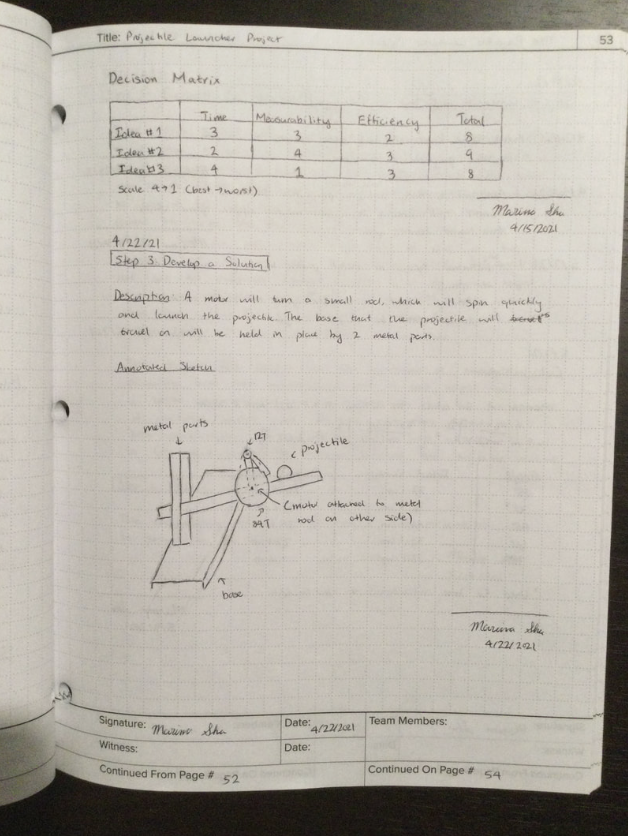 Title: Projectile Launcher Project 53
Decision Matrix
Time Measurability Efficiency Total
Idea #1 3 3 2 8
Idea #2 2 4 3 9
Idea #3 4 1 3 8
Scale 4→1 (best→worst)
4/15/2021
4/22/21
Step 3 Develop a Solution
Description: A motor will turn a small rod, which will spin quickly
and launch the projectile. The base that the projectile will
travel on will be held in place by 2 metal parts.
Annotated Sketch
metal parts
12T
projectile
(motor attached to metal
rod on other side)
84T
base
4/22/2021
Signature: Date: 4/22/2021 Team Members:
Witness: Date:
Continued From Page # 52 Continued On Page # 54